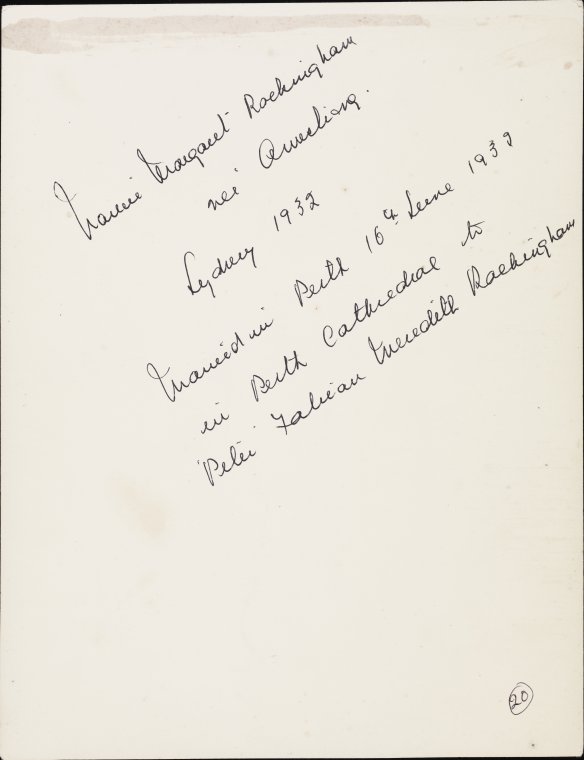 Margaret Rockingham
neé
Sydney 1932
Married in Perth 16th June 1939
in Perth Cathedral to
'Peter' Fabian Meredith Rockingham
20